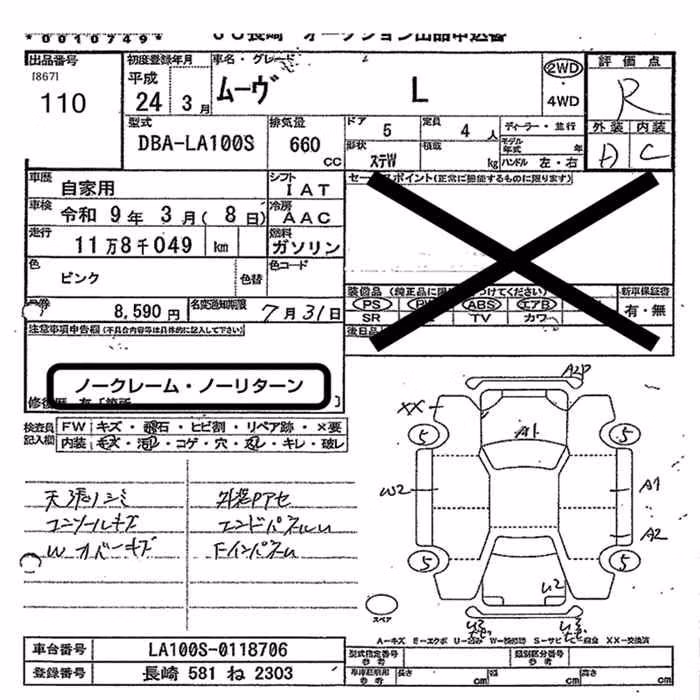 *0010749*
JU長崎 オークション出品申込書
出品番号 初度登録年月 車名・グレード 評価点
[867] 平成 ムーヴ L 2WD R
110 24 3月 ・4WD
外装 内装
型式 排気量 ドア 定員 ディーラー・並行
DBA-LA100S 660 5 4人 モデル年式 年
CC 形状 ステW 積載 kg ハンドル 左・右 C
車歴 自家用 シフト IAT セールスポイント(正常に機能するものに限ります)
車検 令和 9年 3月(8日) 冷房 AAC
走行 11万8千049 km 燃料 ガソリン
色 ピンク 色替 色コード
装備品 (純正品に 新車保証書
8,590円 名変通知期限 7月31日 PS ABS エアB 有・無
SR TV カワ
注意事項申告欄(不具合内容等は具体的に記入して下さい) 後日品
ノークレーム・ノーリターン
修復歴 有「箇所 ]
検査員記入欄 FW キズ・飛石・ヒビ割・リペア跡・×要
内装 キズ・汚れ・コゲ・穴・スレ・キレ・破レ
天張リシミ
コンソールキズ エンドパネルU
W カバーキズ FインパネU
A2P
XX
A1
5 5
W2 A1
A2
5 5
U2
スペア U3 U3
A-キズ E-エクボ U-凹み W-補修跡 S-サビ C-腐食 XX-交換済
車台番号 LA100S-0118706 型式指定番号 参考 類別区分番号 参考
登録番号 長崎 581 ね 2303 車庫証明用 参考 長さ cm 幅 cm 高さ cm